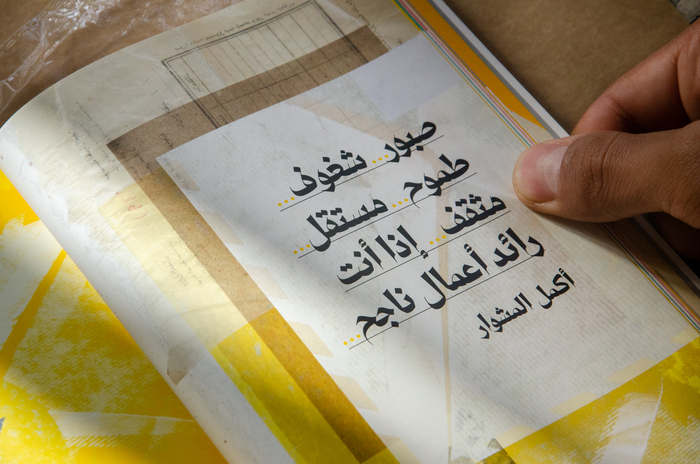 صبور... شغوف...
طموح... مستقل...
مثقف... إذا أنت
رائد أعمال ناجح...
أكمل المشوار